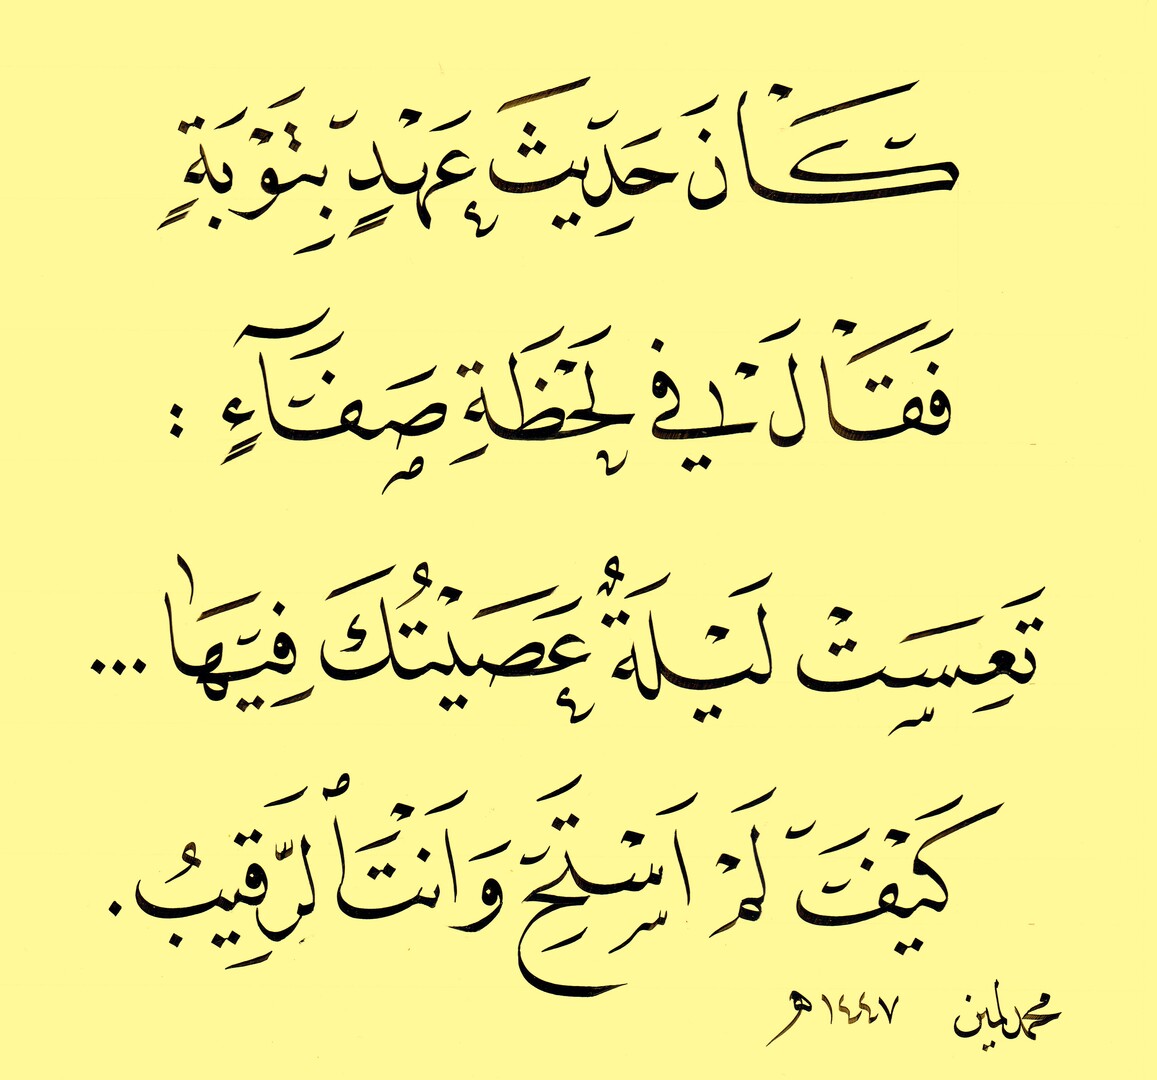 كَانَ حَدِيثَ عَهْدٍ بِتَوْبَةٍ
فَقَالَ فِي لَحْظَةِ صَفَاءٍ :
تَعِسَتْ لَيْلَةٌ عَصَيْتُكَ فِيهَا...
كَيْفَ لَمْ اَسْتَحِ وَاَنْتَ الرَّقِيبُ.
محمد لمين ١٤٤٧ هـ